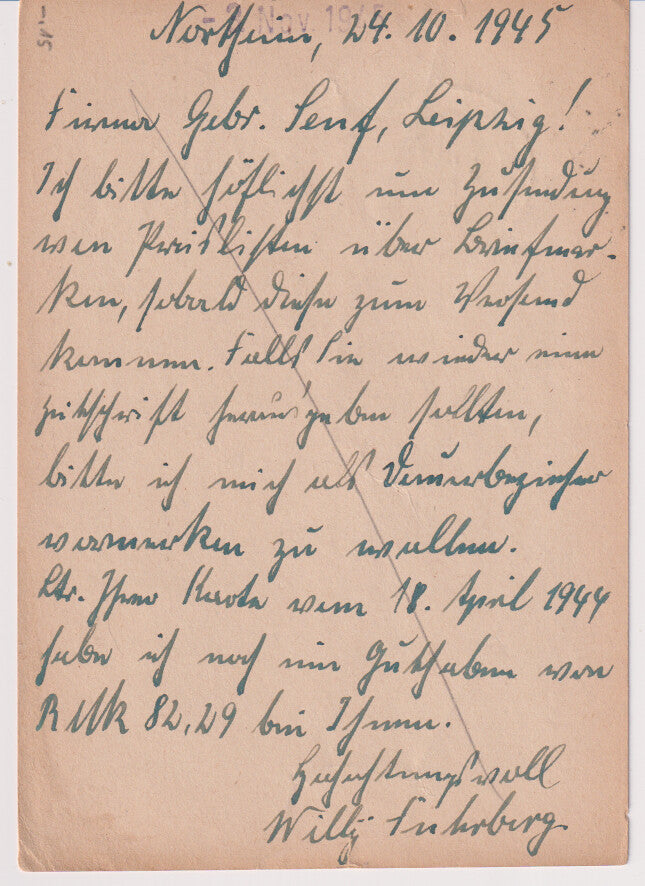 - 2. Nov 1945
Northeim, 24.10.1945
Firma Gebr. Senf, Leipzig!
Ich bitte höflichst um Zusendung
von Preislisten über Briefmar-
ken, sobald diese zum Versand
kommen. Falls Sie wieder eine
Zeitschrift herausgeben sollten,
bitte ich mich als Dauerbezieher
vormerken zu wollen.
Ltr. Ihrer Karte vom 18. April 1944
habe ich noch ein Guthaben von
RMk 82,29 bei Ihnen.
Hochachtungsvoll
Willy Fuhrberg.